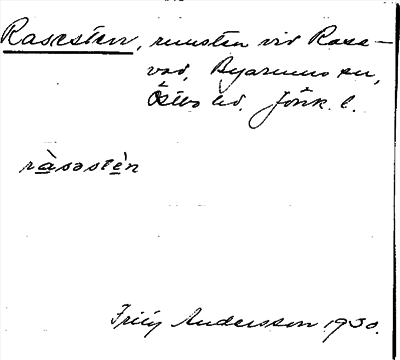 Rasesten, runsten vid Rase-
vad, Byarums sn,
Östbo hd. Jönk. l.
ràsəstè́n
Frity Andersson 1930.